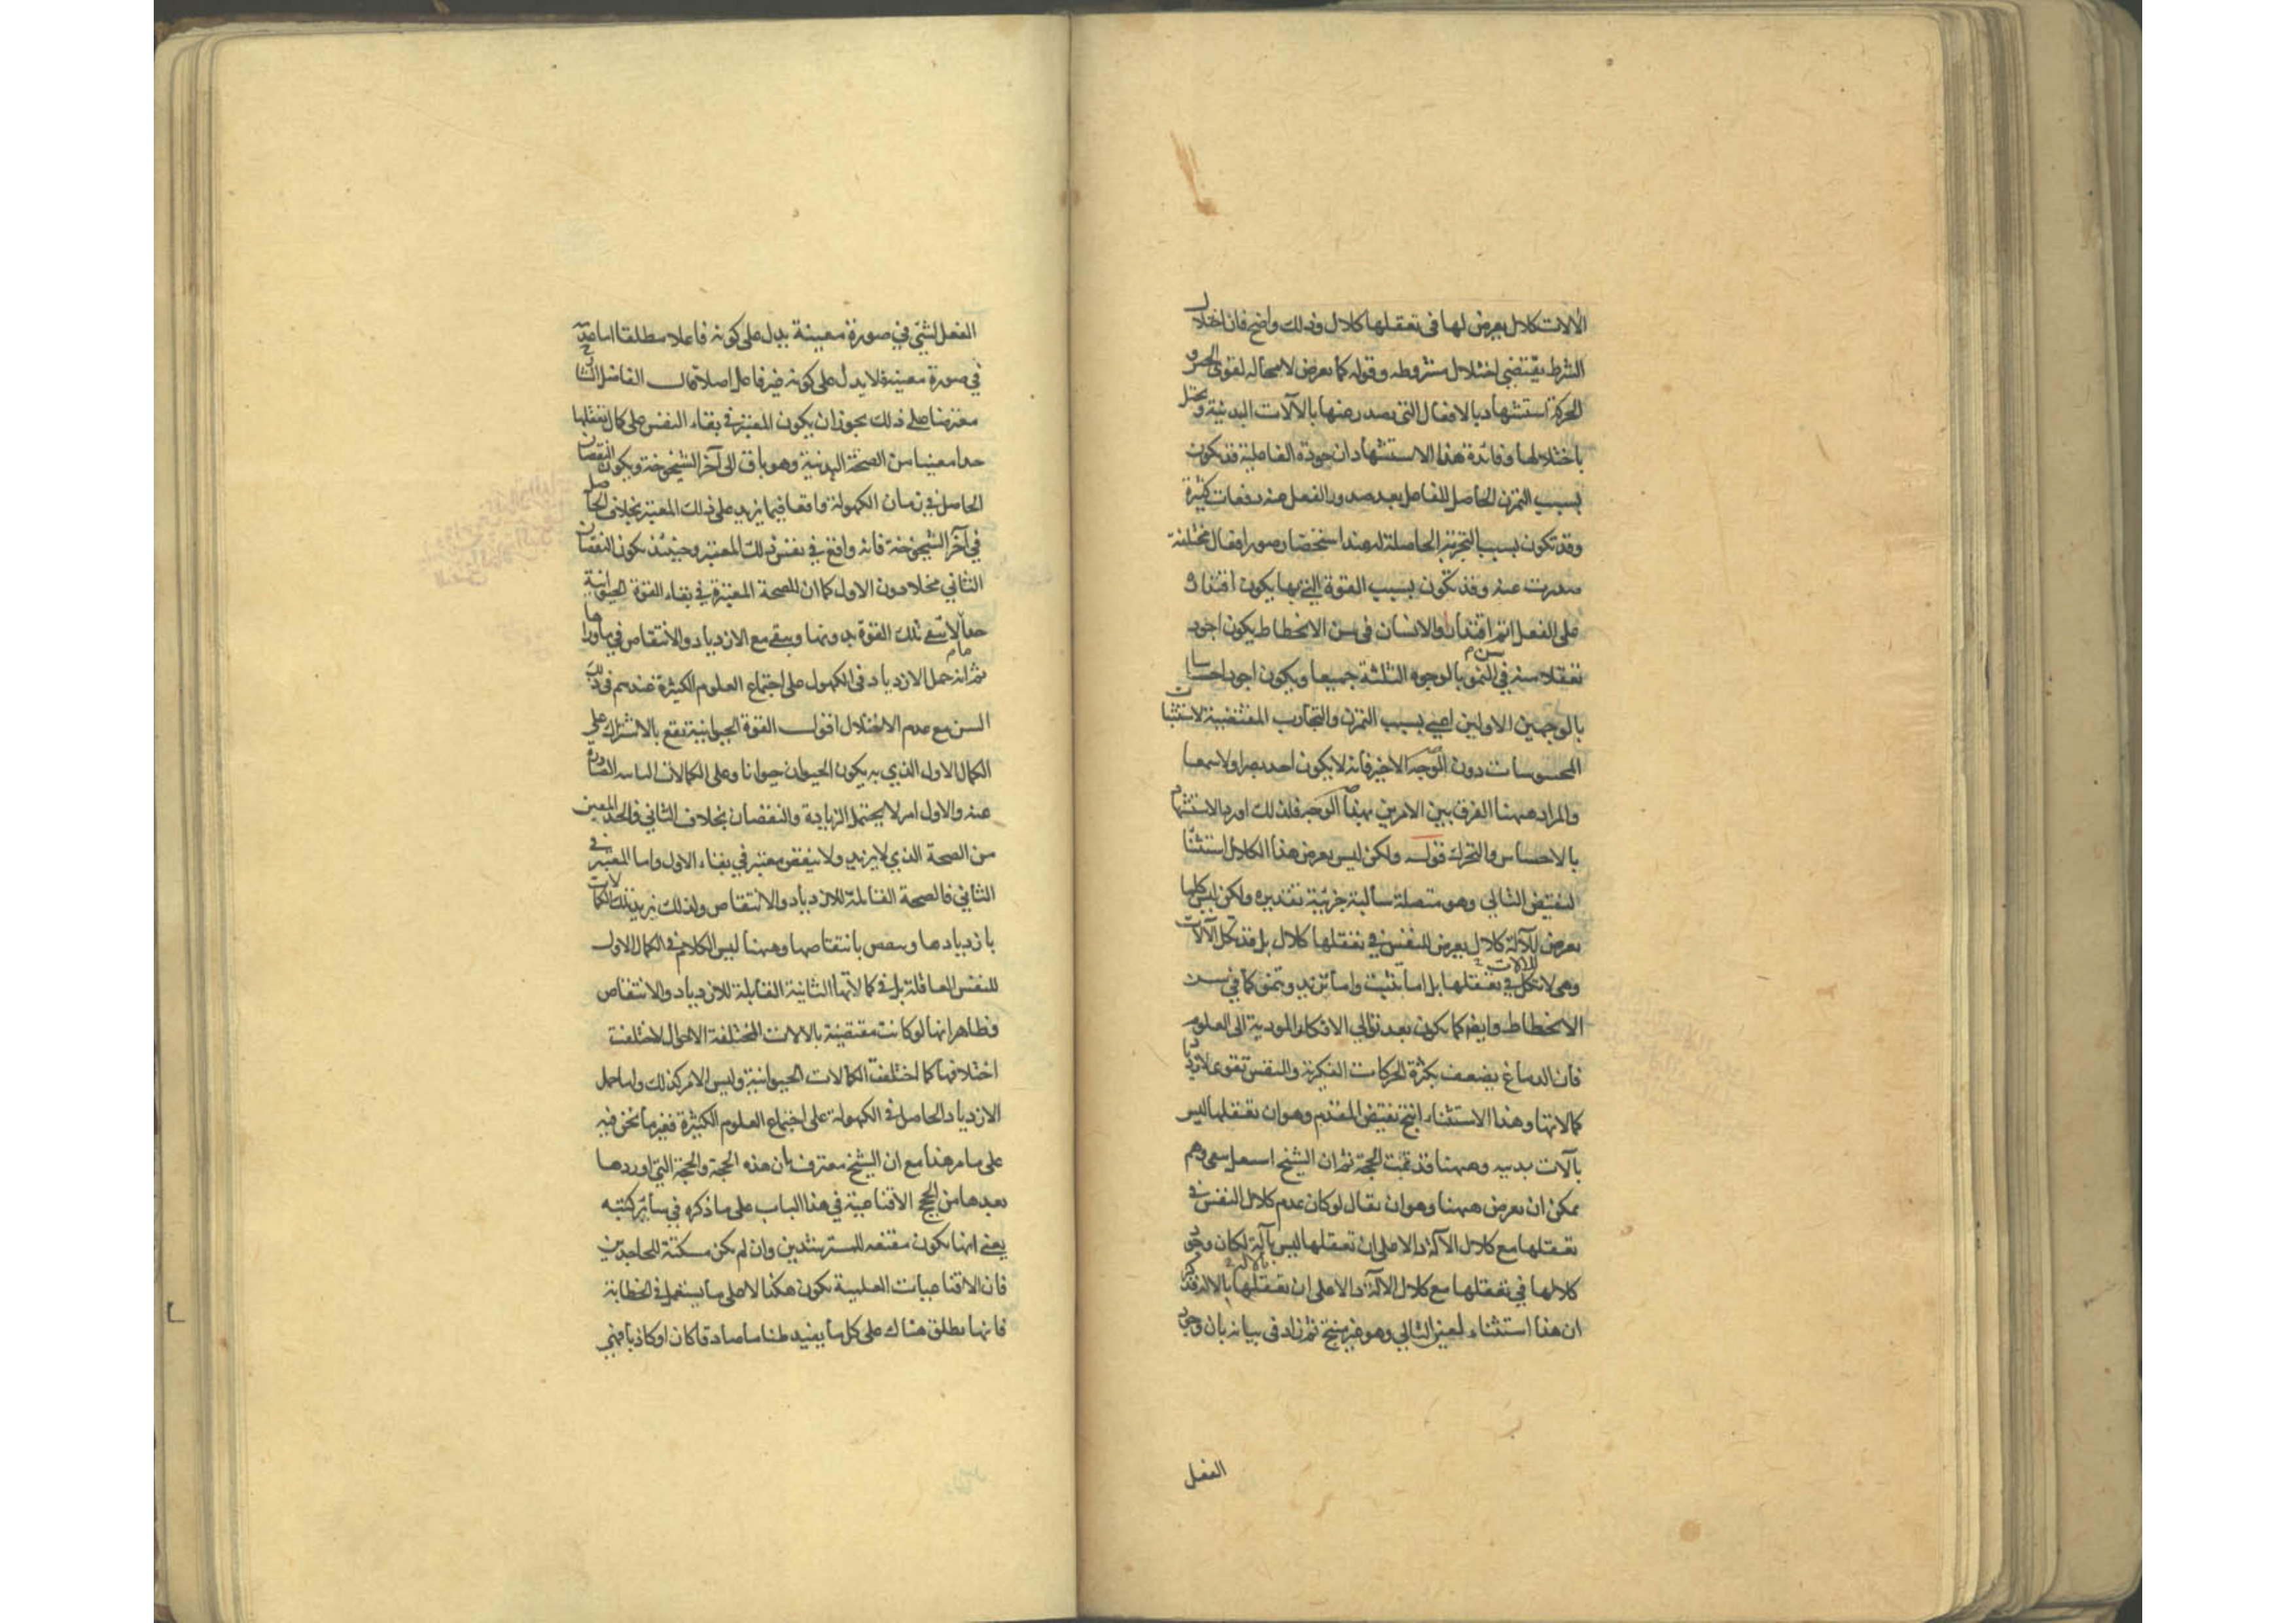 الآلات كلال يعرض لها فى تعقلها كلال وذلك واضح فان اختلال
الشرط يقتضى اختلال مشروطه وقوله كما يعرض لامحاله لقوى الحس و
الحركة استشهاد بالافعال التى تصدر عنها بالآلات البدنية و تختل
باختلالها وفائدة هذا الاستشهاد ان جودة الفاعلية قد تكون
بسبب التمرن الحاصل للفاعل بعد صدور الفعل عنه دفعات كثيرة
وقد تكون بسبب التجربة الحاصلة له عند استحضار صور افعال مختلفة
صدرت عنه وقد تكون بسبب القوة التي بها يكون اقتدار
على الفعل اتم اقتدار والانسان فى سن الانحطاط يكون اجود
تعقلا منه في سن النمو بالوجوه الثلثة جميعا ويكون اجود احساسا
بالوجهين الاولين اعني بسبب التمرن والتجارب المقتضية لاستثبات
المحسوسات دون الوجه الاخير فانه لا يكون احد بصرا ولا سمعا
والمراد ههنا الفرق بين الامرين بهذا الوجه فلذلك اورد الاستشهاد
بالاحساس والتحرك قوله ولكن ليس يعرض هذا الكلال استثنا
لنقيض التالي وهو متصلة سالبة جزئية تقديره ولكن ليس كلما
يعرض للآلة كلال يعرض للنفس في تعقلها كلال بل قد تكل الآلات
وهي لا تكل في تعقلها بل اما تثبت واما تزيد وتنمو كما في سن
الانحطاط وايضا كما يكون بعد توالي الافكار المودية الى العلوم
فان الدماغ يضعف بكثرة الحركات الفكرية والنفس تقوى لازدياد
كمالاتها وهذا الاستثناء انتج نقيض المقدم وهو ان تعقلها ليس
بآلات بدنيه وههنا قد تمت الحجة ثم ان الشيخ اشتغل بنفي وهم
يمكن ان يعرض ههنا وهو ان يقال لو كان عدم كلال النفس في
تعقلها مع كلال الآلة دالا على ان تعقلها ليس بآلة لكان وجود
كلالها في تعقلها مع كلال الآلة دالا على ان تعقلها بالآلة فذكر
ان هذا استثناء لعين التالي وهو غير منتج ثم زاد فى بيانه بان وجود
الفعل
الفعل لشئ في صورة معينة يدل على كونه فاعلا مطلقا اما عدمه
في صورة معينة فلا يدل على كونه غير فاعل اصلا قال الفاضل الشارح
معترضا على ذلك يجوز ان يكون المعتبر في بقاء النفس على كمال تعقلها
حدا معينا من الصحة البدنية وهو باق الى آخر الشيخوخة ويكون النقصان
الحاصل في زمان الكهولة واقعا فيما يزيد على ذلك المعتبر بخلاف الحاصل
في آخر الشيخوخة فانه واقع في نفس ذلك المعتبر وحينئذ يكون النقصان
الثاني مخلا دون الاول كما ان للصحة المعتبرة في بقاء القوة الحيوانية
حدا لا تبقى تلك القوة بدونها ويبقى مع الازدياد والانتقاص في ما وراها
ثم انه حمل الازدياد فى الكهول على اجتماع العلوم الكثيرة عندهم فى ذلك
السن مع عدم الاختلال اقول القوة الحيوانية تقع بالاشتراك على
الكمال الاول الذي به يكون الحيوان حيوانا وعلى الكمالات الثانية الصادرة
عنه والاول امر لا يحتمل الزيادة والنقصان بخلاف الثاني والحد المعين
من الصحة الذي لا يزيد ولا ينقص معتبر في بقاء الاول واما المعتبر في
الثاني فالصحة القابلة للازدياد والانتقاص ولذلك يزيد تلك الكمالات
بازديادها وينقص بانتقاصها وههنا ليس الكلام في الكمال الاول
للنفس العاقلة بل في كمالاتها الثانية القابلة للازدياد والانتقاص
وظاهر انها لو كانت مقتضية بالآلات المختلفة الاحوال لاختلفت
اختلافها كما اختلفت الكمالات الحيوانية وليس الامر كذلك واما حمل
الازدياد الحاصل في الكهولة على اجتماع العلوم الكثيرة فغير ما نحن فيه
على ما مر هذا مع ان الشيخ معترف بان هذه الحجة والحجة التي اوردها
بعدها من الحجج الاقناعية في هذا الباب على ما ذكره في سائر كتبه
يعني انها تكون مقنعه للمسترشدين وان لم تكن مسكتة للجاحدين
فان الاقناعيات العلمية تكون هكذا لا على ما يستعمل في الخطابة
فانها يطلق هناك على كل ما يفيد ظنا ما صادقا كان او كاذبا